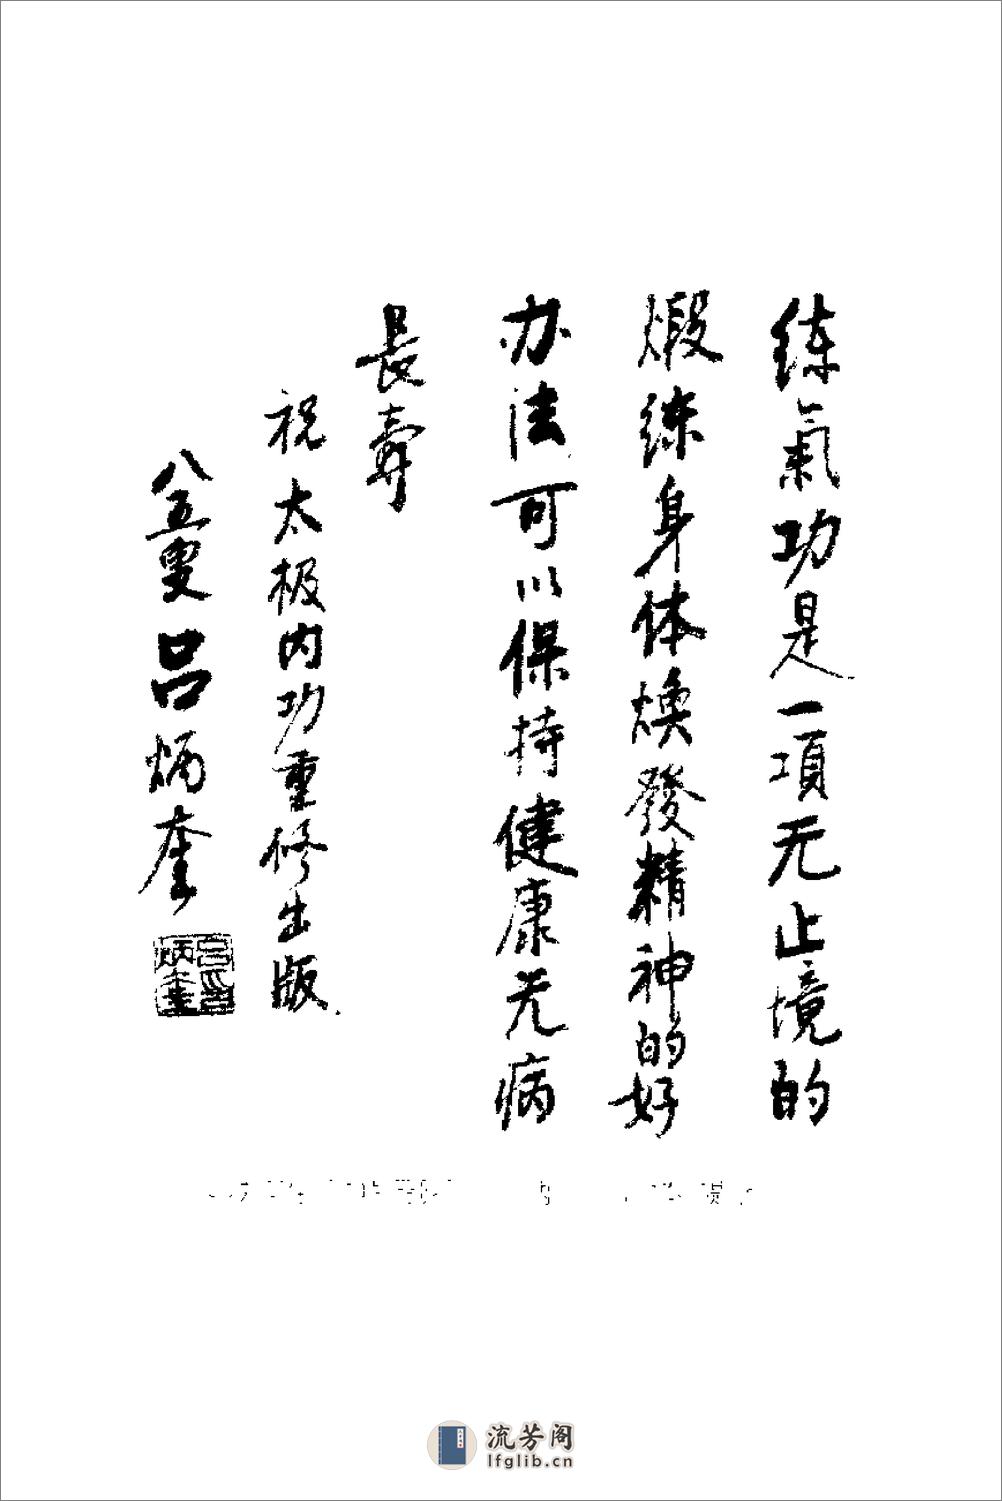 练氣功是一項无止境的
煅练身体焕發精神的好
办法可以保持健康无病
長寿
祝太极内功重修出版
八五叟吕炳奎
吕炳奎
流芳阁
lfglib.cn